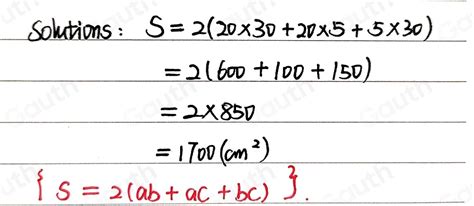 Solutions: S = 2(20×30+20×5+5×30)
= 2(600+100+150)
= 2×850
= 1700(cm²)
{ S = 2(ab+ac+bc) }.